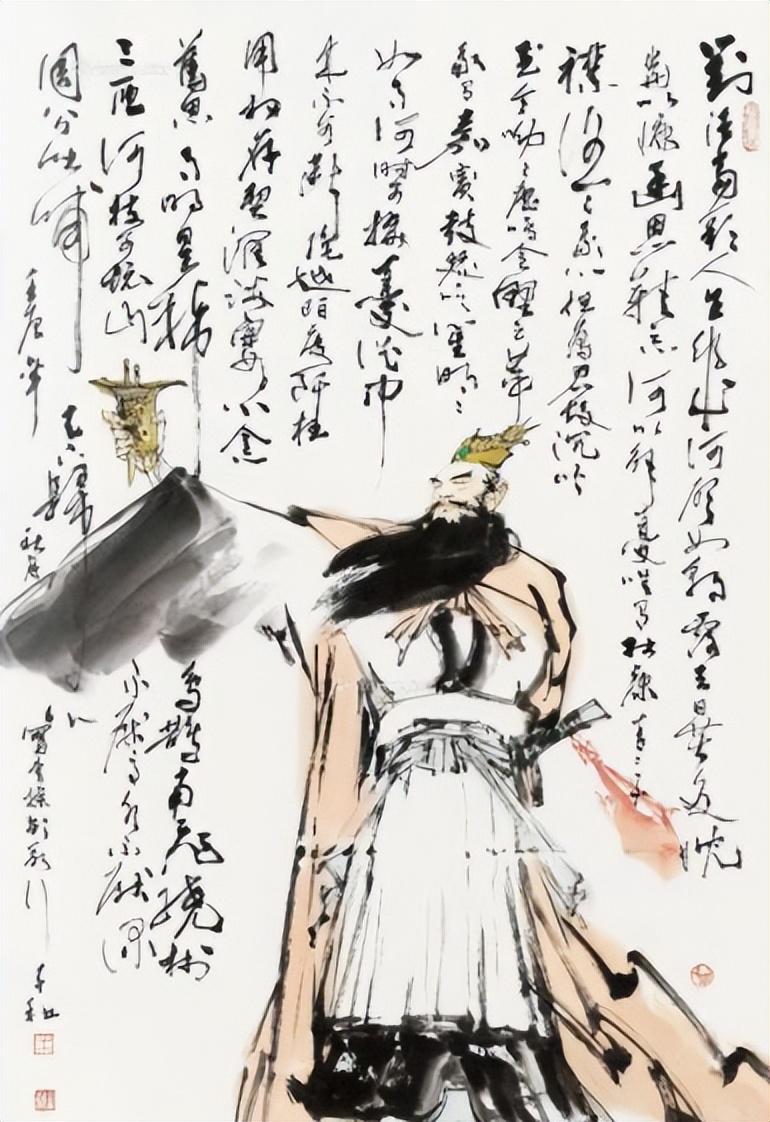 對酒當歌人生幾何譬如朝露去日苦多慨
當以慷幽思難忘何以解憂唯有杜康青青子
襟悠悠我心但為君故沉吟
至今呦呦鹿鳴食野之苹
我有嘉賓鼓瑟吹笙明明
如月何時掇憂從中
來不可斷越陌度阡枉
用相存契闊談讌心念
舊恩月明星稀
烏鵲南飛繞樹
三匝何枝可依山
不厭高水不厭深
周公吐哺
天下歸心
壬辰年
秋月
寫曹操短歌行